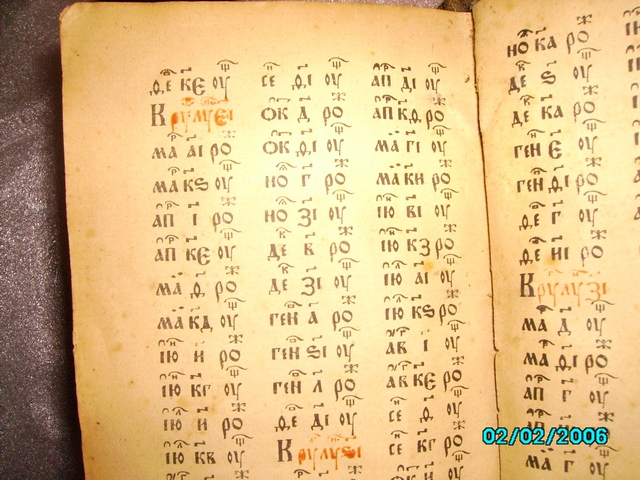 ѳе ке оу
Крулуеі
ма аі ро
ма кѕ оу
ап і ро
ап ке оу
ма кд оу
ію и ро
ію кг оу
ію и ро
ію кв оу
се ді оу
ок д ро
ок ді оу
но г ро
но зі оу
де в ро
де зі оу
ген а ро
ген ѕі оу
ген л ро
фе ді оу
Крулуѕі
ап ді оу
ап кѳ ро
ма гі оу
ма ки ро
ію ві оу
ію кз ро
ію аі оу
ію кѕ ро
ав і оу
ав ке ро
се ѳ оу
се кг ро
но ка ро
де ѕ оу
де ка ро
ген є оу
ген ѳі ро
фе г оу
фе иі ро
Крулузі
ма д оу
ма ѳі ро
ап г оу
ма г оу
02/02/2006